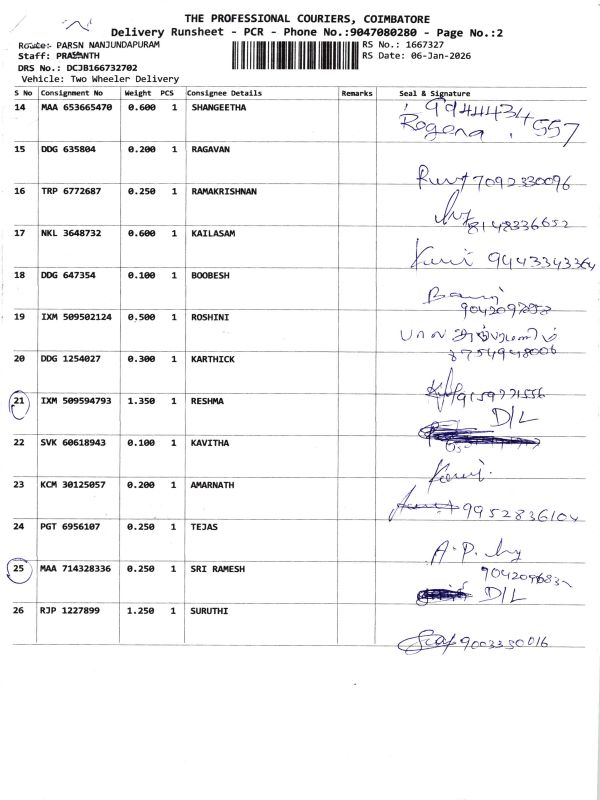 THE PROFESSIONAL COURIERS, COIMBATORE
Delivery Runsheet - PCR - Phone No.:9047080280 - Page No.:2
Route:- PARSN NANJUNDAPURAM
RS No.: 1667327
Staff: PRASANTH
RS Date: 06-Jan-2026
DRS No.: DCJB166732702
Vehicle: Two Wheeler Delivery
S No Consignment No Weight PCS Consignee Details Remarks Seal & Signature
14 MAA 653665470 0.600 1 SHANGEETHA 9944434
Rogena 557
15 DDG 635804 0.200 1 RAGAVAN
7092330096
16 TRP 6772687 0.250 1 RAMAKRISHNAN
8148336652
17 NKL 3648732 0.600 1 KAILASAM
9443343364
18 DDG 647354 0.100 1 BOOBESH
19 IXM 509502124 0.500 1 ROSHINI
8754948006
20 DDG 1254027 0.300 1 KARTHICK
9159771556
21 IXM 509594793 1.350 1 RESHMA D/L
22 SVK 60618943 0.100 1 KAVITHA
23 KCM 30125057 0.200 1 AMARNATH
9952836104
24 PGT 6956107 0.250 1 TEJAS
A.P.
25 MAA 714328336 0.250 1 SRI RAMESH
D/L
26 RJP 1227899 1.250 1 SURUTHI
9003350016